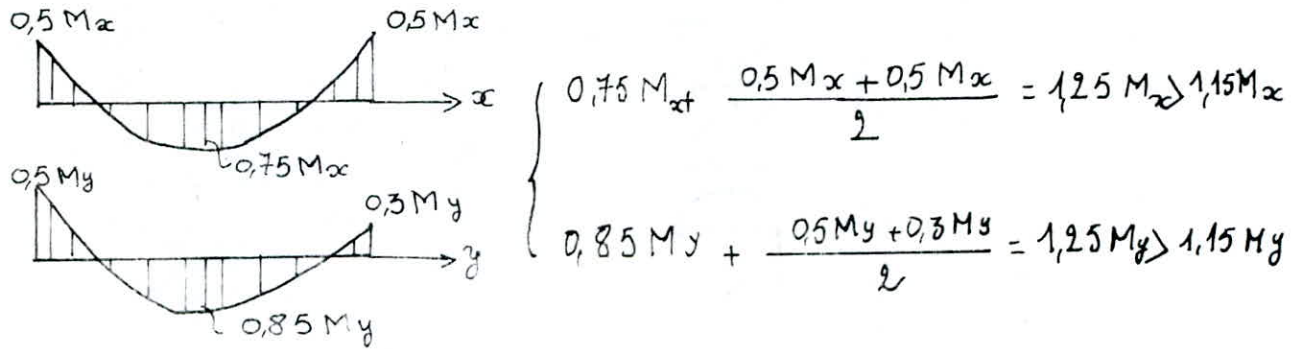 0,5 Mx 0,5 Mx
x
0,75 Mx
0,5 My 0,3 My
y
0,85 My
0,75 Mx + (0,5 Mx + 0,5 Mx) / 2 = 1,25 Mx > 1,15 Mx
0,85 My + (0,5 My + 0,3 My) / 2 = 1,25 My > 1,15 My